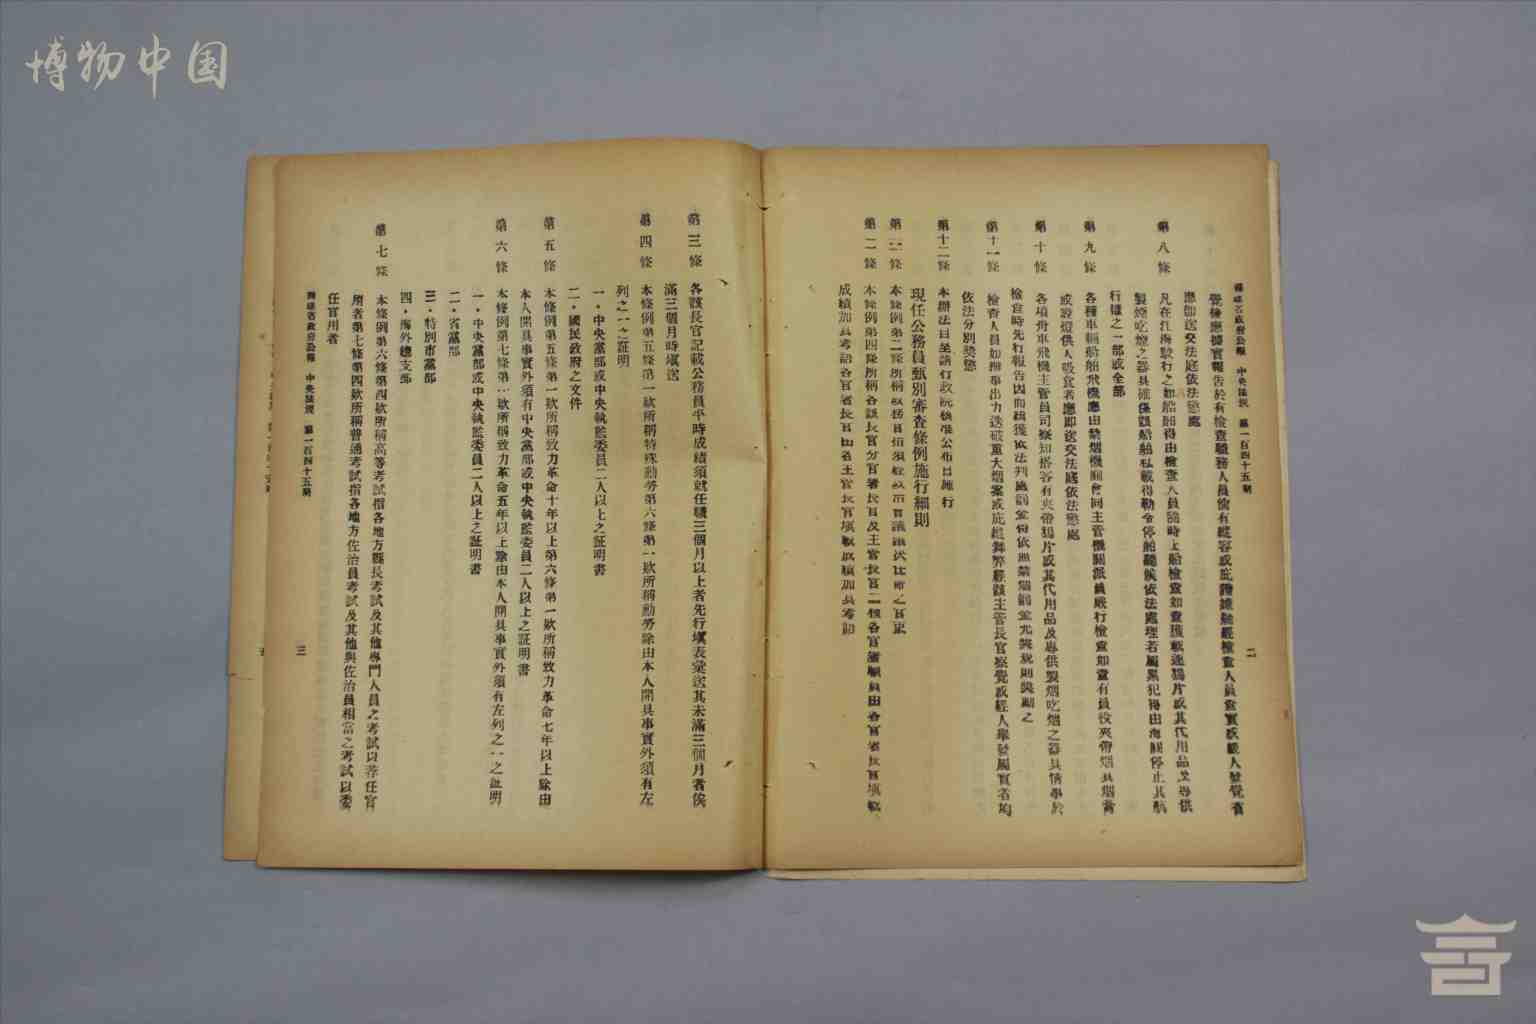 博物中国
政府公報 中央法規 第一百四十五期
二
覺檢應據實報告於有檢查職務人員倘有縱容或庇護經檢查人員查實或被人發覺者
應即送交法庭依法懲處
第八條 凡在江海駛行之船舶得由檢查人員隨時上船檢查如查獲載運鴉片或其代用品及專供
製煙吃煙之器具確係該船舶私載得勒令停船聽候依法處理若屬累犯得由海關停止其航
行權之一部或全部
第九條 各種車輛船舶飛機應由禁烟機關會同主管機關派員嚴行檢查如查有員役夾帶烟具烟膏
或設燈供人吸食者應即送交法庭依法懲處
第十條 各項舟車飛機主管員司察知搭客有夾帶鴉片或其代用品及專供製烟吃烟之器具情事於
檢查時先行報告因而緝獲依法判處罰金得依照禁烟罰金充獎規則獎勵之
第十一條 檢查人員如辦事出力迭破重大烟案或庇縱舞弊經該主管長官察覺或經人舉發屬實者均
依法分別獎懲
第十二條 本辦法自呈請行政院核准公布日施行
現任公務員甄別審查條例施行細則
第一條 本條例第二條所稱
第二條 本條例第四條所稱各該長官分官署長官及主管長官二種各官署職員由各官署長官填載
成績加具考語各官署長官由各主管長官填載成績加具考語
第三條 各該長官記載公務員平時成績須就任職三個月以上者先行填表彙送其未滿三個月者俟
滿三個月時填送
第四條 本條例第五條第一款所稱特殊勳勞第六條第一款所稱勳勞除由本人開具事實外須有左
列之一之証明
一．中央黨部或中央執監委員二人以上之証明書
二．國民政府之文件
第五條 本條例第五條第一款所稱致力革命十年以上第六條第一款所稱致力革命七年以上除由
本人開具事實外須有中央黨部或中央執監委員二人以上之証明書
第六條 本條例第七條第一款所稱致力革命五年以上除由本人開具事實外須有左列之一之証明
一．中央黨部或中央執監委員二人以上之証明書
二．省黨部
三．特別市黨部
四．海外總支部
第七條 本條例第六條第四款所稱高等考試指各地方縣長考試及其他專門人員之考試以荐任官
用者第七條第四款所稱普通考試指各地方佐治員考試及其他與佐治員相當之考試以委
任官用者
省政府公報 中央法規 第一百四十五期
三